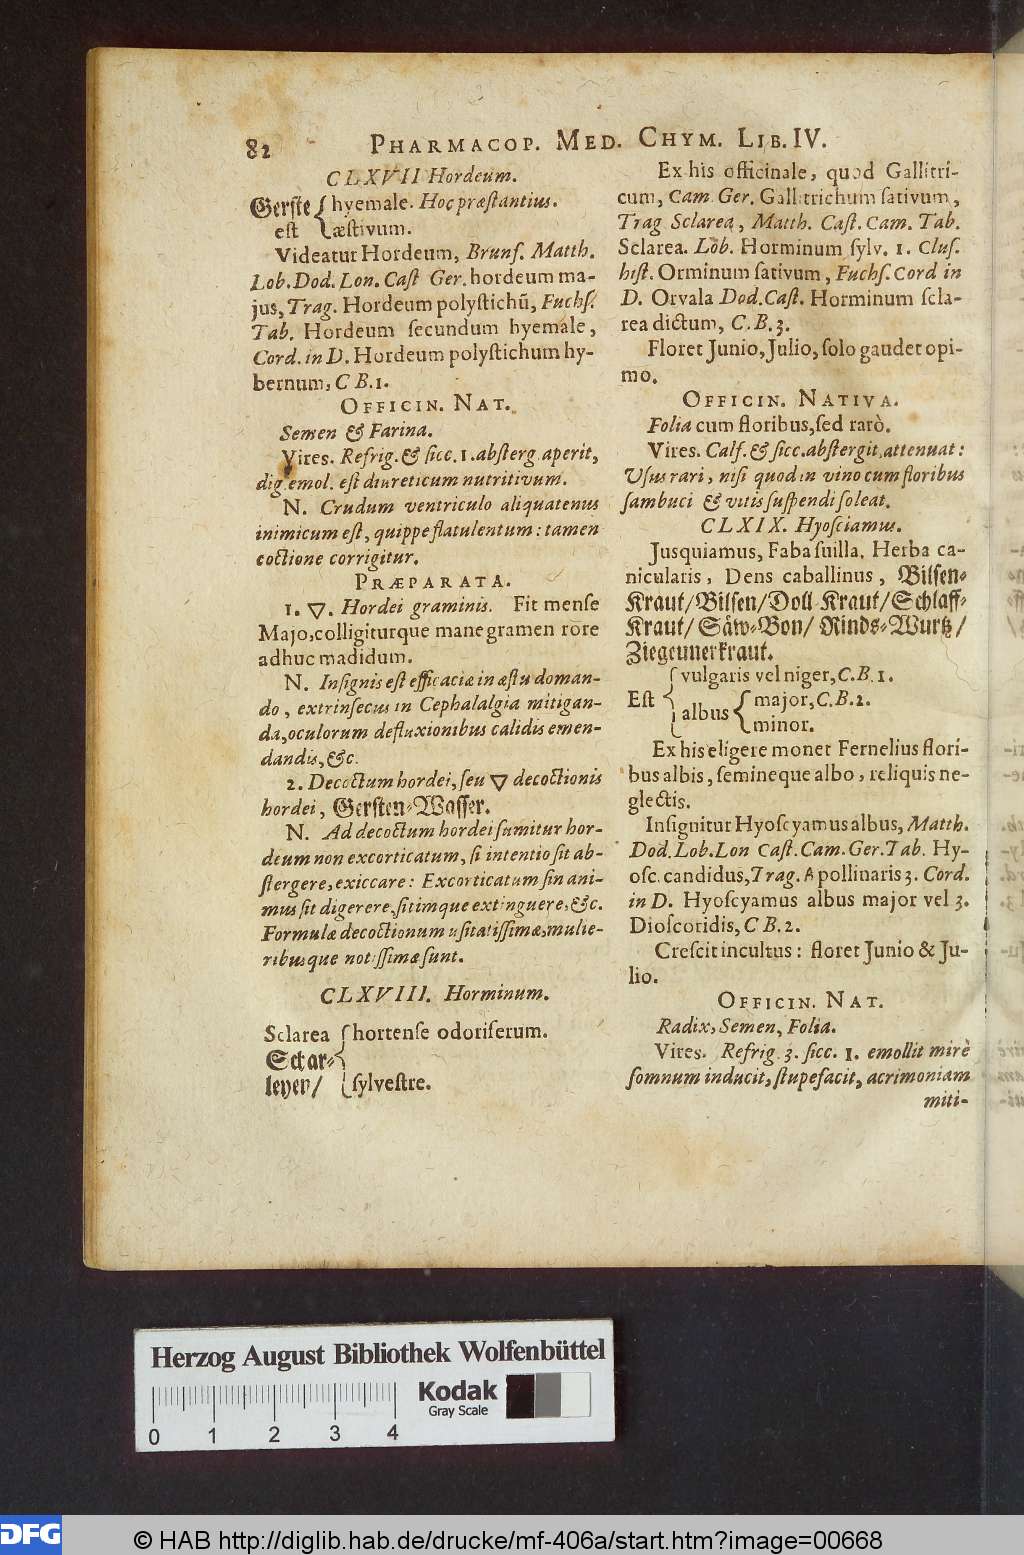 82 PHARMACOP. MED. CHYM. LIB. IV.
CLXVII Hordeum.
Gerste { hyemale. Hoc præstantius.
est { æstivum.
Videatur Hordeum, Brunf. Matth.
Lob. Dod. Lon. Cast Ger. hordeum ma-
jus, Trag. Hordeum polystichũ, Fuchs.
Tab. Hordeum secundum hyemale,
Cord. in D. Hordeum polystichum hy-
bernum, C B. 1.
OFFICIN. NAT.
Semen & Farina.
Vires. Refrig. & sicc. 1. absterg aperit,
dig. emol. est diureticum nutritivum.
N. Crudum ventriculo aliquatenus
inimicum est, quippe flatulentum: tamen
coctione corrigitur.
PRÆPARATA.
1. 🜄. Hordei graminis. Fit mense
Majo, colligiturque mane gramen rore
adhuc madidum.
N. Insignis est efficaciæ in æstu doman-
do, extrinsecus in Cephalalgia mitigan-
da, oculorum defluxionibus calidis emen-
dandis, &c.
2. Decoctum hordei, seu 🜄 decoctionis
hordei, Gersten-Wasser.
N. Ad decoctum hordei sumitur hor-
deum non excorticatum, si intentio sit ab-
stergere, exiccare: Excorticatum sin ani-
mus sit digerere, sitimque extinguere, &c.
Formulæ decoctionum usitatissimæ, mulie-
ribusque notissimæ sunt.
CLXVIII. Horminum.
Sclarea { hortense odoriferum.
Schar
leyen/ { sylvestre.
Ex his officinale, quod Gallitri-
cum, Cam. Ger. Gallitrichum sativum,
Trag Sclarea, Matth. Cast. Cam. Tab.
Sclarea. Lob. Horminum sylv. 1. Clus.
hist. Orminum sativum, Fuchs. Cord in
D. Orvala Dod. Cast. Horminum scla-
rea dictum, C. B. 3.
Floret Junio, Julio, solo gaudet opi-
mo.
OFFICIN. NATIVA.
Folia cum floribus, sed rarò.
Vires. Calf. & sicc. abstergit, attenuat:
Usus rari, nisi quod in vino cum floribus
sambuci & vitis suspendi soleat.
CLXIX. Hyosciamus.
Jusquiamus, Faba suilla, Herba ca-
nicularis, Dens caballinus, Bilsen-
Kraut/ Bilsen/ Doll Kraut/ Schlaff-
Kraut/ Säw-Bon/ Rinds-Wurtz/
Ziegeunerkraut.
{ vulgaris vel niger, C. B. 1.
Est { albus { major, C. B. 2.
{ minor.
Ex his eligere monet Fernelius flori-
bus albis, semineque albo, reliquis ne-
glectis.
Insignitur Hyoscyamus albus, Matth.
Dod. Lob. Lon Cast. Cam. Ger. Tab. Hy-
osc. candidus, Trag. Apollinaris 3. Cord.
in D. Hyoscyamus albus major vel 3.
Dioscoridis, C B. 2.
Crescit incultus: floret Junio & Ju-
lio.
OFFICIN. NAT.
Radix, Semen, Folia.
Vires. Refrig. 3. sicc. 1. emollit mirè
somnum inducit, stupefacit, acrimoniam
miti-
Herzog August Bibliothek Wolfenbüttel
Kodak
Gray Scale
0 1 2 3 4
DFG
© HAB http://diglib.hab.de/drucke/mf-406a/start.htm?image=00668